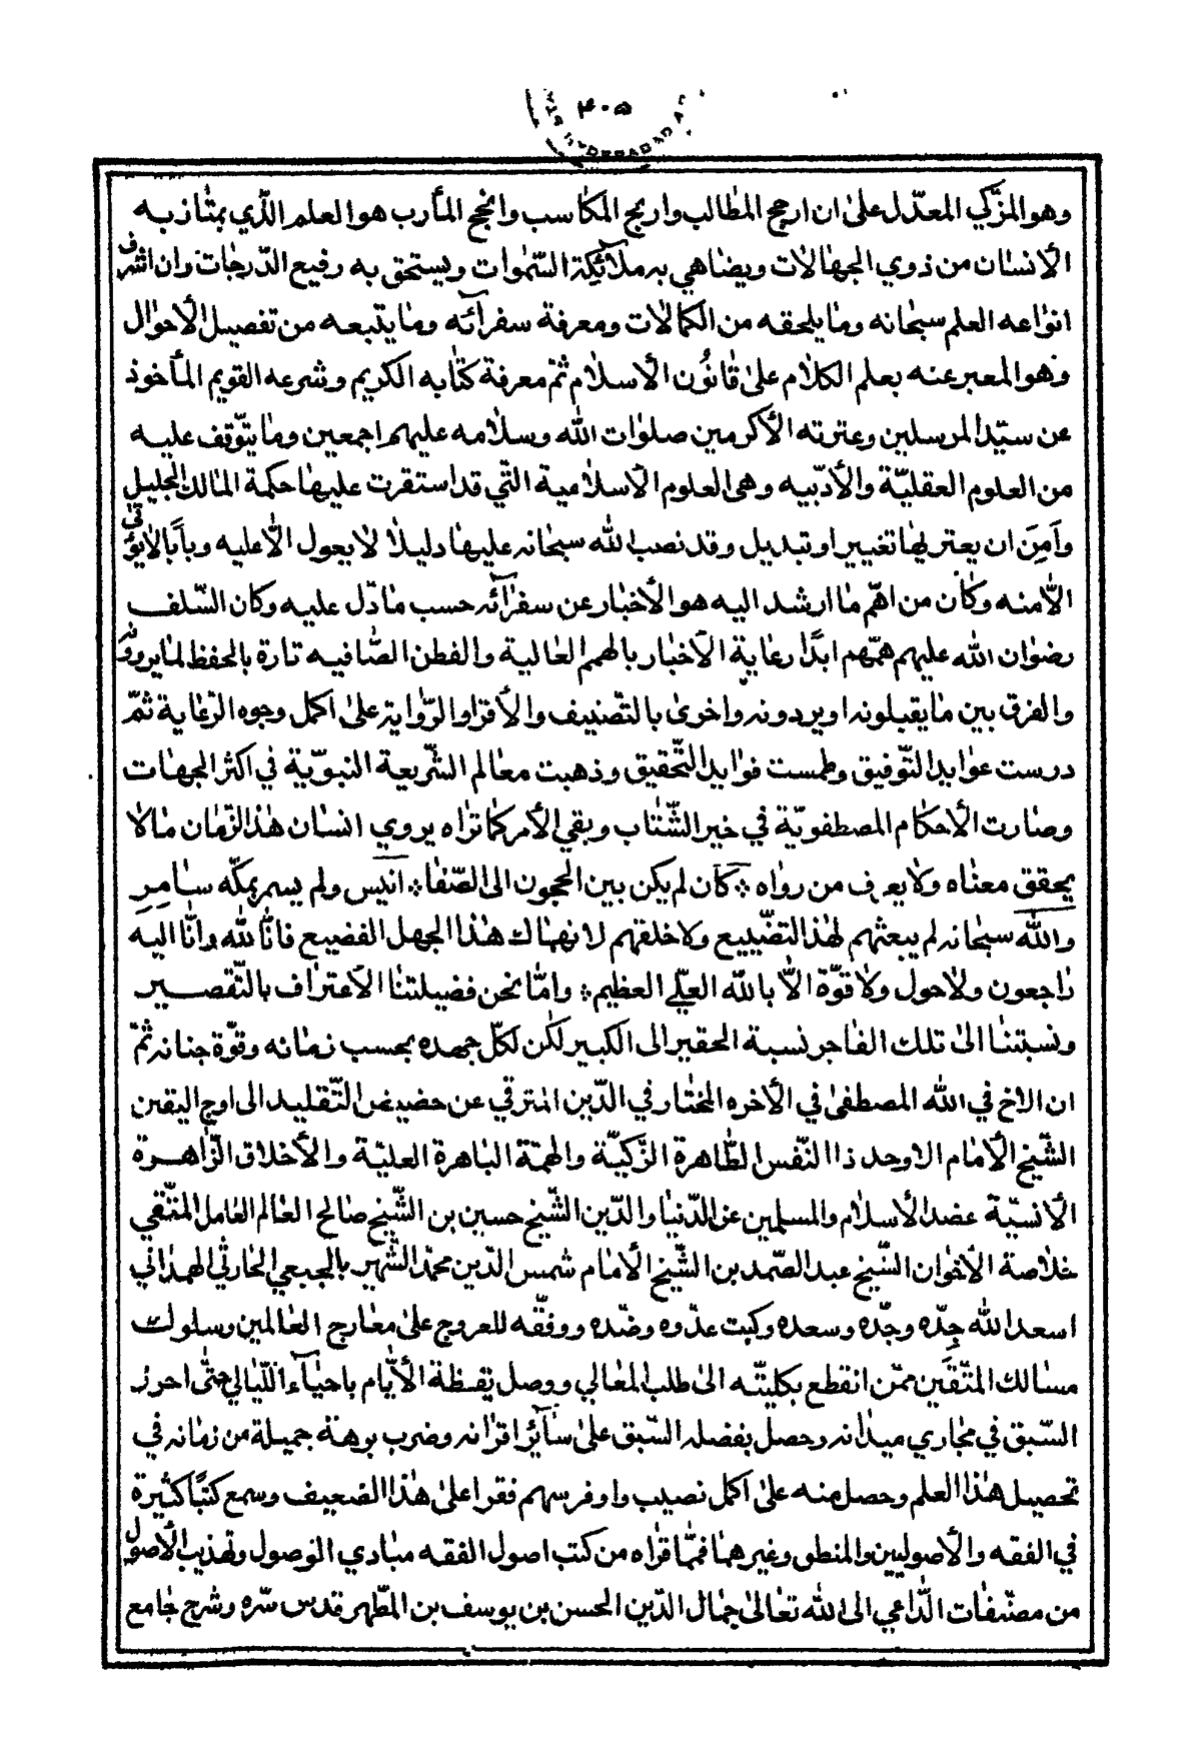 ۴۰۵
وهو المزكّي المعدّل على ان ارجح المطالب واربح المكاسب وانجح المأرب هو العلم الّذي يمتاز به
الأنسان من ذوي الجهالات ويضاهي به ملآئكة السّموات ويستحق به رفيع الدّرجات وان اشرف
انواعه العلم سبحانه وما يلحقه من الكمالات ومعرفة سفرآئه وما يتبعه من تفصيل الأحوال
وهو المعبر عنه بعلم الكلام على قانُون الأسلام ثمّ معرفة كتابه الكريم وشرعه القويم المأخوذ
عن سيّد المرسلين وعترته الأكرمين صلوات الله وسلامه عليهم اجمعين وما يتوّقف عليه
من العلوم العقليّة والأدبّيه وهى العلوم الأسلامية الّتي قد استقرت عليها حكمة المالك الجليل
وآمِنَ ان يعتريها تغيير او تبديل وقد نصب لله سبحانه عليها دليلًا لا يعول الّا عليه وبابًا لا يؤتى
الّامنه وكان من اهمّ ما ارشد اليه هو الأخبار عن سفرآئه حسب ما دّل عليه وكان السّلف
رضوان الله عليهم همّهم ابدًا رعاية الأخبار بالهمم العالية والفطن الصّافيه تارة بالحفظ لما يروونه
والفرق بين ما يقبلونه او يردونه واخرى بالتّصنيف والأقراو الرّواية على اكمل وجوه الرّعاية ثمّ
درست عوايد التّوفيق وطمست فوايد التّحقيق وذهبت معالم الشّريعة النبوّية في اكثر الجهات
وصارت الأحكام المصطفويّة في خير الشّتاب وبقي الأمر كما تراه يروي انسان هذا الزّمان مالا
يحقق معناه ولا يعرف من رواه ؞ كان لم يكن بين الحجون الى الصّفا ؞ انيس ولم يسمر بمكّه سامِرِ
والله سبحانه لم يبعثهم لهذا التضّييع ولا خلقهم لانهماك هذا الجهل الفضيع فانّا لله وانّا اليه
راجعون ولاحول ولا قوّة الّا بالله العلّي العظيم ؞ وامّا نحن فضيلتنا الأعتراف بالتّقصير
ونسبتنا الى تلك الفاجر نسبة الحقير الى الكبير لكن لكلّ جهده بحسب زمانه وقوّة جنانه ثمّ
ان الاخ في الله المصطفى في الأخره المختار في الدّين المترقي عن حضيض التّقليد الى اوج اليقين
الشّيخ الأمام الاوحد ذا النّفس الطّاهرة الزّكيّة والهمّة الباهرة العليّة والأخلاق الزّاهرة
الأنسيّة عضد الأسلام والمسلمين عز الدّنيا والدّين الشّيخ حسين بن الشّيخ صالح العالم العامل المتّقي
خلاصة الأخوان الشّيخ عبد الصّمد بن الشّيخ الأمام شمس الدّين محمّد الشّهير بالجبعي الحارثي الهمداني
اسعد الله جدِّه وجدّه وسعده وكبت عدّوه وضدّه ووفقّه للعروج على معارج العالمين وسلوك
مسالك المتّقين ممّن انقطع بكليتّه الى طلب المعالي ووصل يقظة الأيّام باحيآء اللّيالي حتّى احرز
السّبق في مجاري ميدانه وحصل بفضله السّبق على سآئر اقرانه وضرب برهة جميلة من زمانه في
تحصيل هذا العلم وحصل منه على اكمل نصيب واوفر سهم فقرا على هذا الضعيف وسمع كتبًا كثيرة
في الفقه والأصوليين والمنطق وغيرهما فممّا قراه من كتب اصول الفقه مبادي الوصول وتهذيب الأصول
من مصنّفات الدّاعي الى الله تعالى جمال الدّين الحسن بن يوسف بن المطّهر قدس سّره وشرح جامع